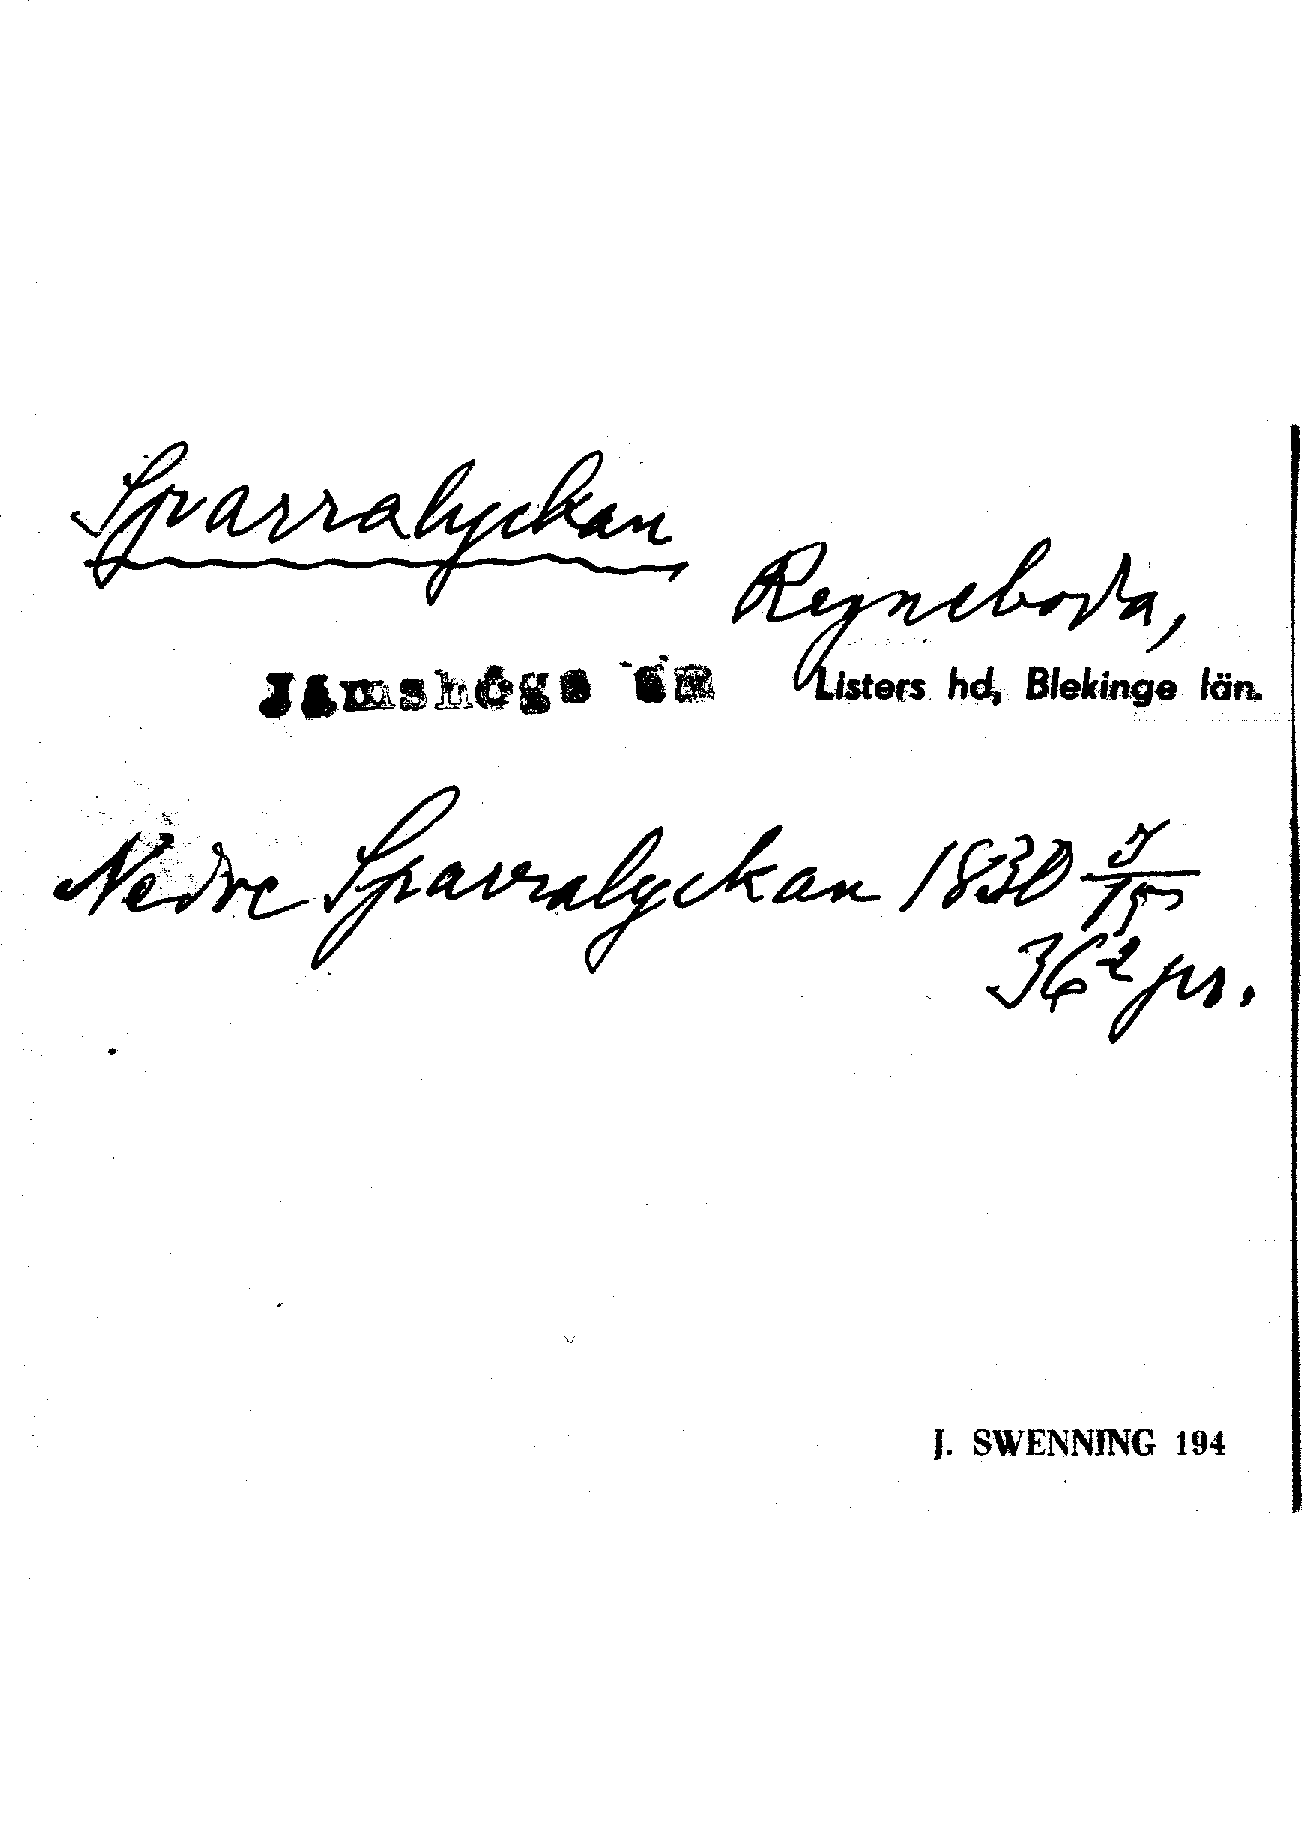 Sparralyckan
Ryneboda,
Jämshögs sn Listers hd, Blekinge län.
Nedre Sparralyckan 1830
36² pr.
J. SWENNING 194